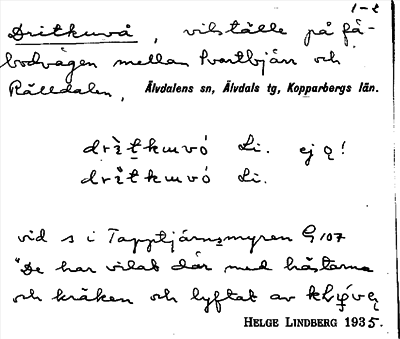 1-2
Dritkuvå, vilställe på fä-
bodvägen mellan Svarttjärn och
Rälldalen, Älvdalens sn, Älvdals tg, Kopparbergs län.
drìtkuvó Li. ej ę!
drìtkuvó Li.
vid s i Tapptjärnsmyren G 107
"De har vilat där med hästarna
och kräken och lyftat av
HELGE LINDBERG 1935.